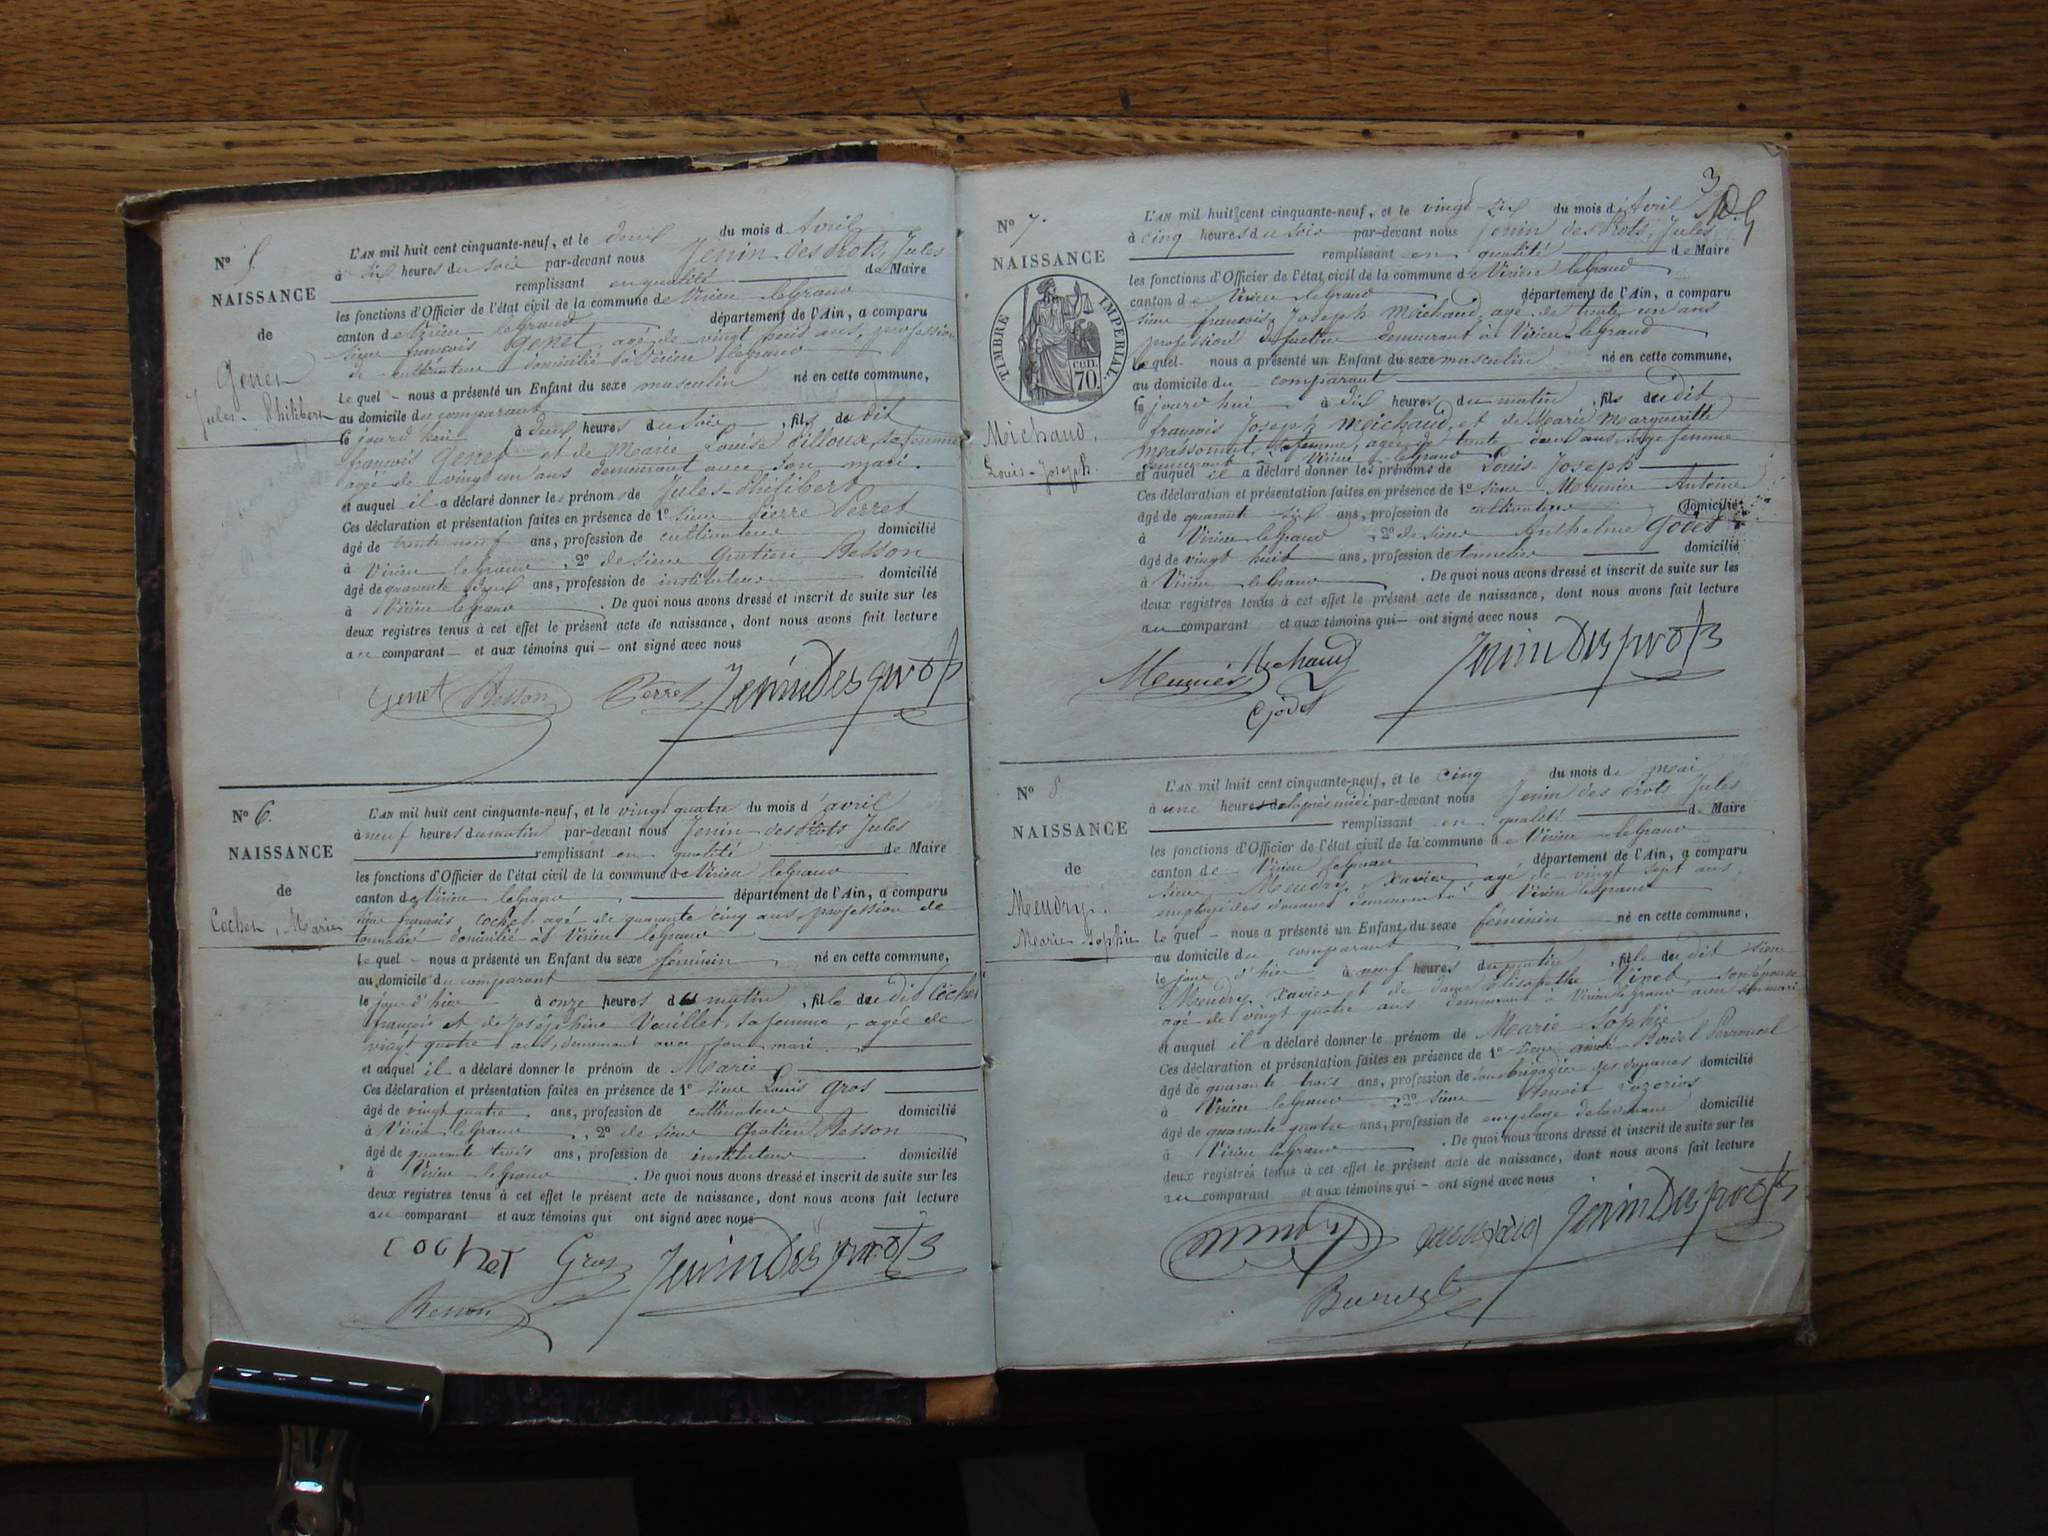 N° 5.
NAISSANCE
de
Genet
Jules-Philibert
L'AN mil huit cent cinquante-neuf, et le deux du mois d'Avril
à six heures du soir par-devant nous Jenin des Prots, Jules
remplissant en qualité de Maire
les fonctions d'Officier de l'état civil de la commune de Virieu legrand
canton de Virieu legrand département de l'Ain, a comparu
sieur françois Genet, agé de vingt huit ans, profession
de cultivateur domicilié à Virieu legrand
Lequel nous a présenté un Enfant du sexe masculin né en cette commune,
au domicile du comparant
le jourd'hui à deux heures du soir, fils du dit
françois Genet et de Marie Louise Pilloux, sa femme
agée de vingt un ans demeurant avec son mari.
et auquel il a déclaré donner les prénoms de Jules-Philibert
Ces déclaration et présentation faites en présence de 1° sieur Pierre Perret
âgé de trente neuf ans, profession de cultivateur domicilié
à Virieu legrand, 2° de sieur Gratien Besson
âgé de quarante deux ans, profession de instituteur domicilié
à Virieu legrand. De quoi nous avons dressé et inscrit de suite sur les
deux registres tenus à cet effet le présent acte de naissance, dont nous avons fait lecture
au comparant et aux témoins qui ont signé avec nous
Genet Besson Perret Jenin Desprots
N° 6.
NAISSANCE
de
Cochet, Marie
L'AN mil huit cent cinquante-neuf, et le vingt quatre du mois d'avril
à neuf heures du matin par-devant nous Jenin des Prots Jules
remplissant en qualité de Maire
les fonctions d'Officier de l'état civil de la commune de Virieu legrand
canton de Virieu legrand département de l'Ain, a comparu
sieur françois Cochet agé de quarante cinq ans, profession de
tonnelier domicilié à Virieu legrand
Lequel nous a présenté un Enfant du sexe féminin né en cette commune,
au domicile du comparant
le jour d'hier à onze heures du matin, fille du dit Cochet
françois et de Joséphine Vuillet, sa femme, agée de
vingt quatre ans, demeurant avec son mari
et auquel il a déclaré donner le prénom de Marie
Ces déclaration et présentation faites en présence de 1° sieur Louis Gros
âgé de vingt quatre ans, profession de cultivateur domicilié
à Virieu legrand, 2° de sieur Gratien Besson
âgé de quarante trois ans, profession de instituteur domicilié
à Virieu legrand. De quoi nous avons dressé et inscrit de suite sur les
deux registres tenus à cet effet le présent acte de naissance, dont nous avons fait lecture
au comparant et aux témoins qui ont signé avec nous
cochet Gros Jenin Desprots
Besson
3
N° 7.
NAISSANCE
TIMBRE IMPÉRIAL
CEN.
70.
Michaud,
Louis-Joseph.
L'AN mil huit cent cinquante-neuf, et le vingt six du mois d'Avril
à cinq heures du soir par-devant nous Jenin des Prots, Jules
remplissant en qualité de Maire
les fonctions d'Officier de l'état civil de la commune de Virieu legrand
canton de Virieu legrand département de l'Ain, a comparu
sieur françois Joseph Michaud, agé de trente un ans
profession de facteur demeurant à Virieu-legrand
Lequel nous a présenté un Enfant du sexe masculin né en cette commune,
au domicile du comparant
le jourd'hui à dix heures du matin, fils du dit
françois Joseph Michaud, et de Marie Marguerite
Meassonnet, sa femme, agée de trente deux ans, sage femme
demeurant à Virieu-legrand
et auquel il a déclaré donner les prénoms de Louis-Joseph
Ces déclaration et présentation faites en présence de 1° sieur Meunier Antoine
âgé de quarante six ans, profession de cultivateur domicilié
à Virieu legrand, 2° de sieur Anthelme Godet
âgé de vingt huit ans, profession de tonnelier domicilié
à Virieu legrand. De quoi nous avons dressé et inscrit de suite sur les
deux registres tenus à cet effet le présent acte de naissance, dont nous avons fait lecture
au comparant et aux témoins qui ont signé avec nous
Meunier Michaud Jenin Desprots
Godet
N° 8
NAISSANCE
de
Meudry.
Marie Sophie
L'AN mil huit cent cinquante-neuf, et le cinq du mois de mai
à une heure de l'après midi par-devant nous Jenin des Prots Jules
remplissant en qualité de Maire
les fonctions d'Officier de l'état civil de la commune de Virieu legrand
canton de Virieu legrand département de l'Ain, a comparu
sieur Meudry, Xavier, agé de vingt sept ans,
employé des douanes demeurant à Virieu legrand
Lequel nous a présenté un Enfant du sexe féminin né en cette commune,
au domicile du comparant
le jour d'hier à neuf heures du matin, fille du dit sieur
Meudry, Xavier et de dame Elisabethe Vinet son épouse
agé de vingt quatre ans demeurant à Virieu legrand avec son mari
et auquel il a déclaré donner le prénom de Marie-Sophie
Ces déclaration et présentation faites en présence de 1° sieur aimé
âgé de quarante trois ans, profession de sous brigadier des douanes domicilié
à Virieu legrand, 2° sieur Benoit
âgé de quarante quatre ans, profession de employé domicilié
à Virieu legrand. De quoi nous avons dressé et inscrit de suite sur les
deux registres tenus à cet effet le présent acte de naissance, dont nous avons fait lecture
au comparant et aux témoins qui ont signé avec nous
Jenin Desprots